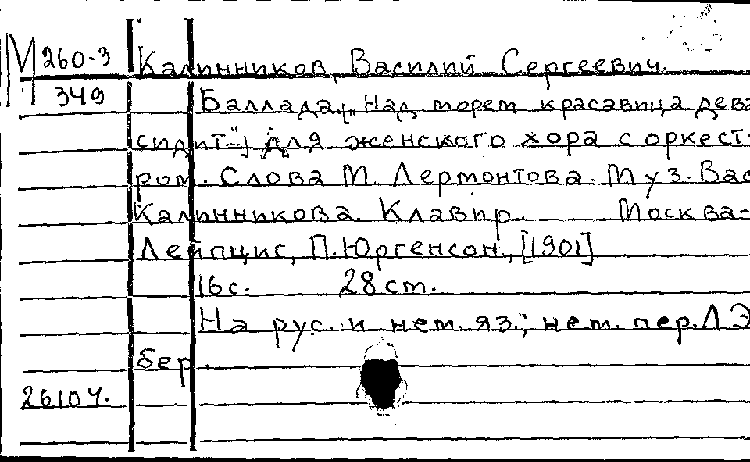 М 260-3 Калинников, Василий Сергеевич.
Т 349 Баллада („Над морем красавица дева
сидит"), для женского хора с оркест-
ром. Слова М. Лермонтова. Муз. Вас
Калинникова. Клавир. Москва-
Лейпциг, П. Юргенсон, [1901]
16 с. 28 ст.
На рус. и нем. яз.; нем. пер. Л Э
бер.